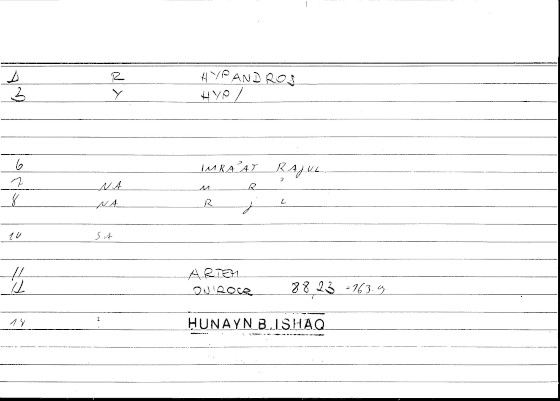 1 R HYPANDROS
3 Y HYP/
6 IMRA'AT RAJUL
7 NA M R ʾ
8 NA R j l
10 SA
11 ARTEM
12 88,23 -163.9
14 : HUNAYN B. ISHAQ